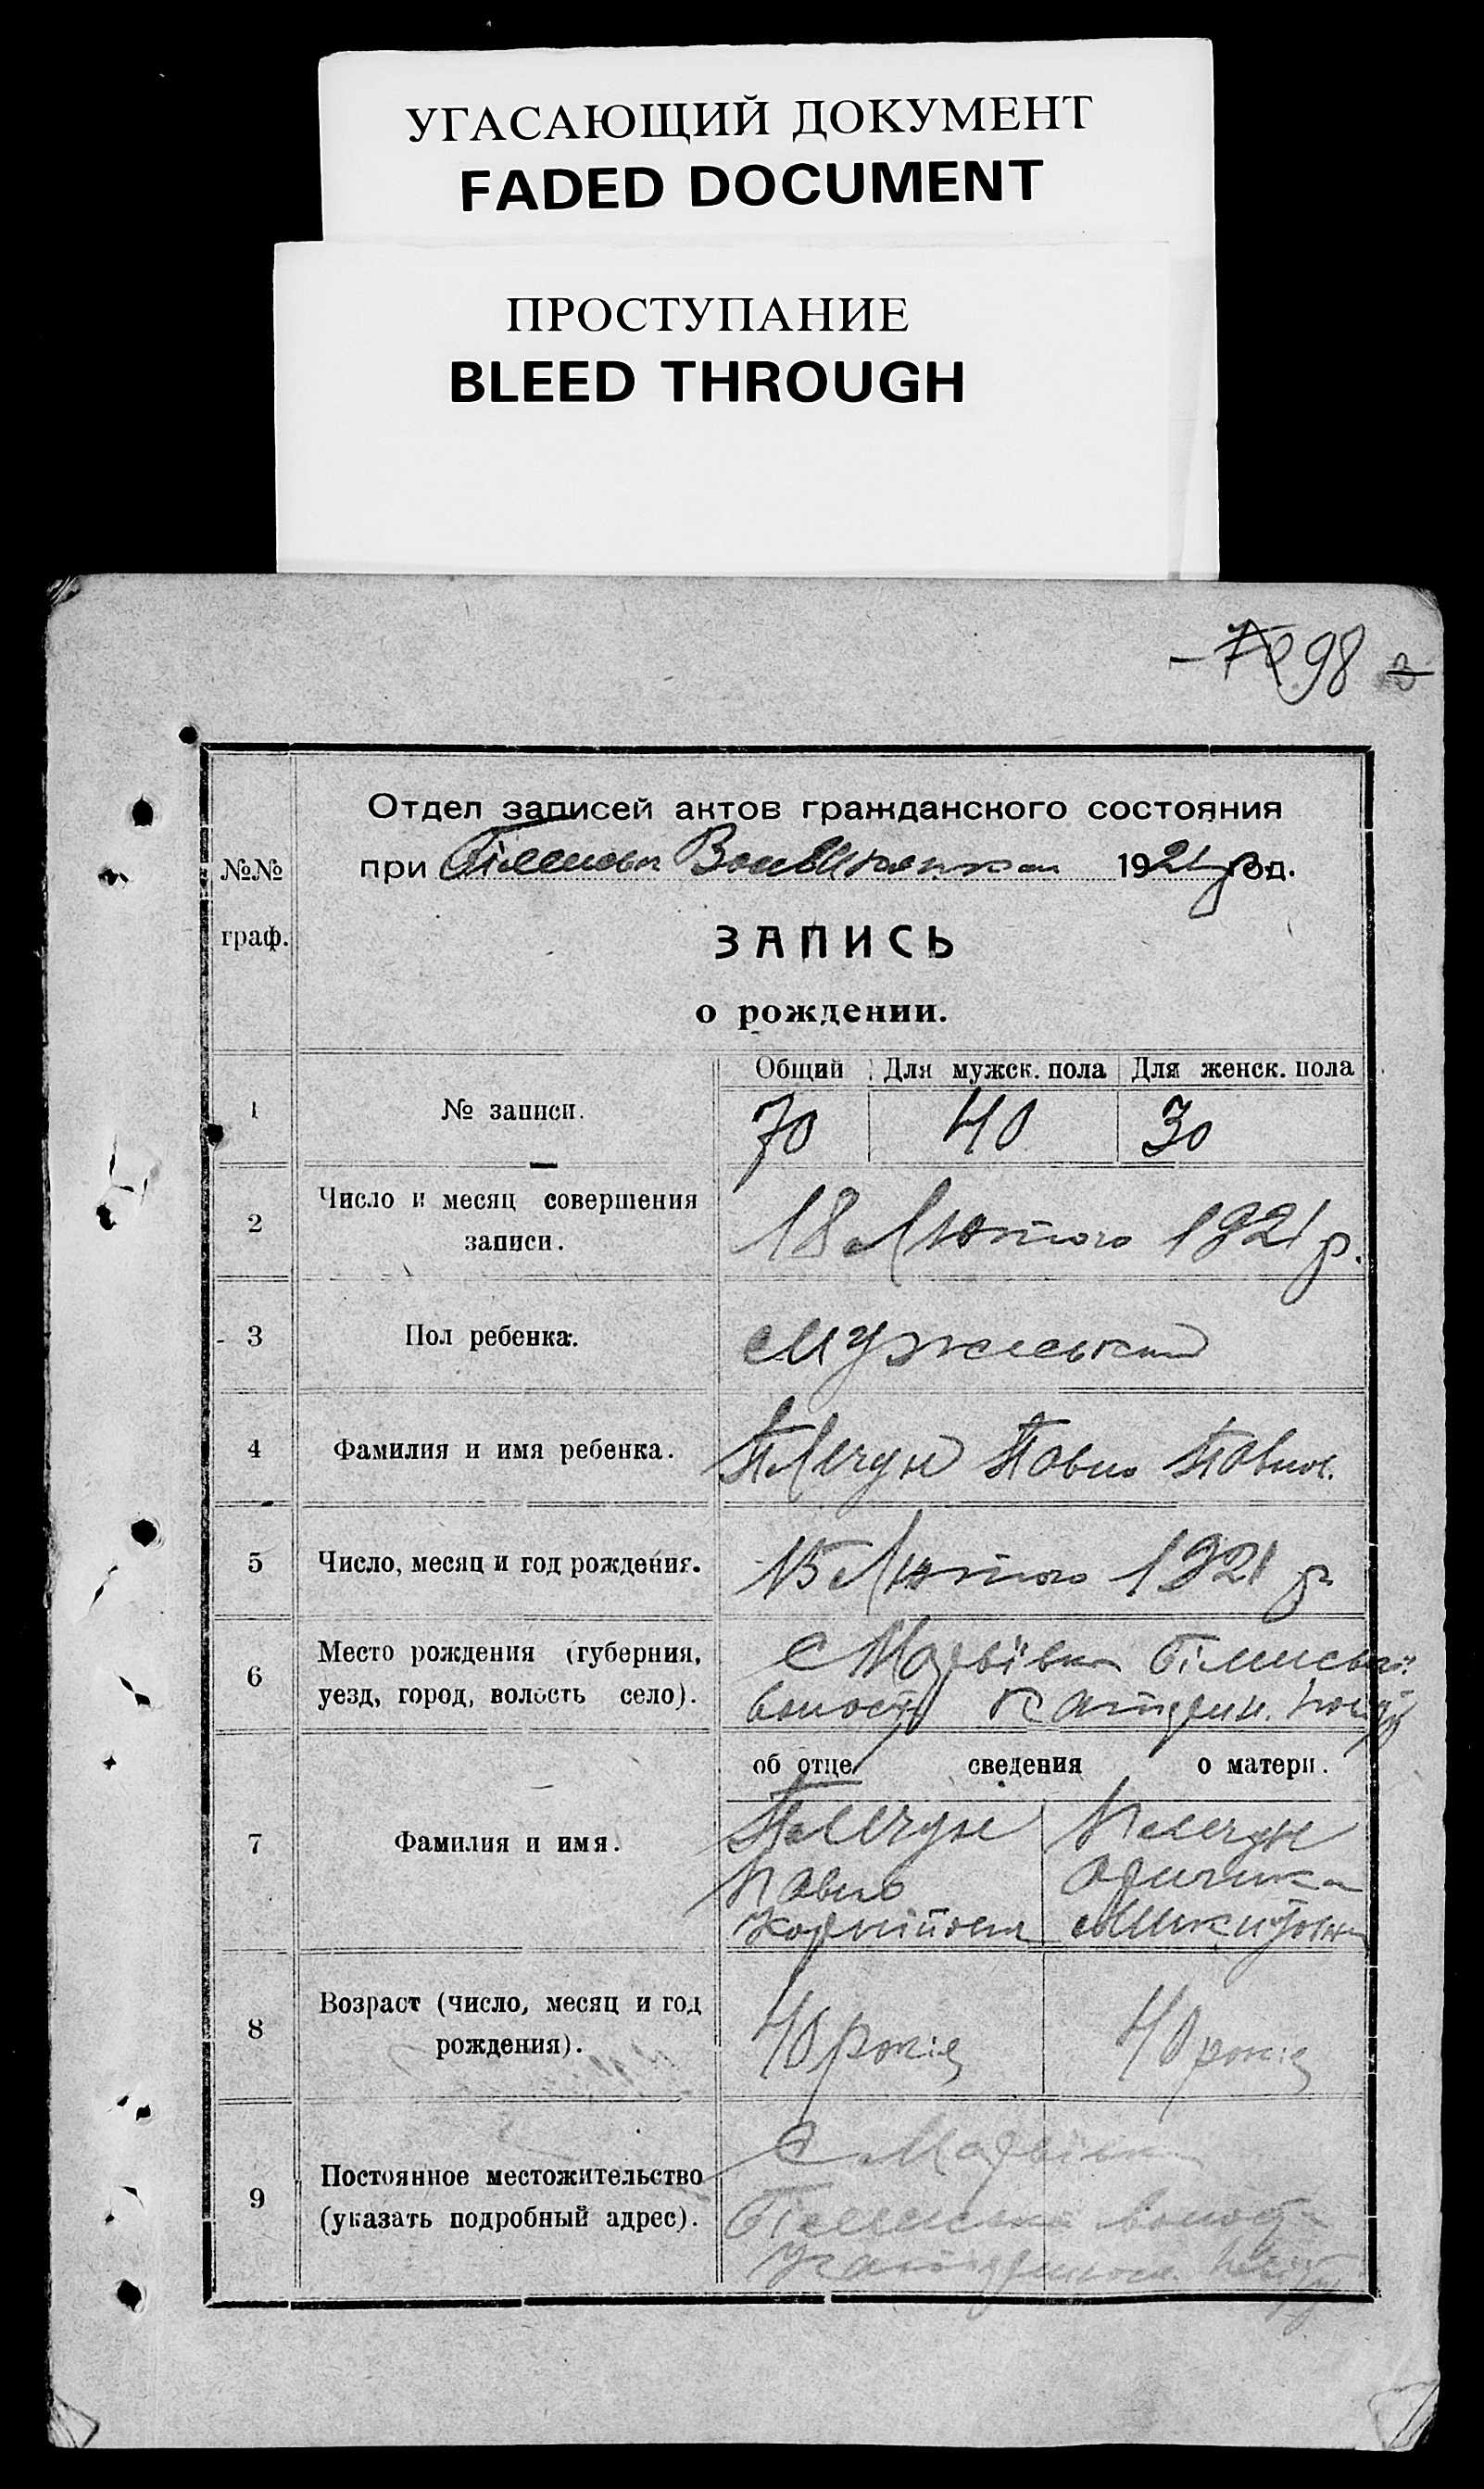 УГАСАЮЩИЙ ДОКУМЕНТ
FADED DOCUMENT
ПРОСТУПАНИЕ
BLEED THROUGH
98
Отдел записей актов гражданского состояния
при 1921 год.
№№
граф.
ЗАПИСЬ
о рождении.
Общий Для мужск. пола Для женск. пола
1 № записи. 70 40 30
2 Число и месяц совершения
записи.
18 Лютого 1921 р.
3 Пол ребенка. Мужеський
4 Фамилия и имя ребенка. Павло Павлов.
5 Число, месяц и год рождения. 15 Лютого 1921 р.
6 Место рождения (губерния,
уезд, город, волость село).
С Марьівка
волости
об отце сведения о матери.
7 Фамилия и имя.
Павло
Микитовна
8 Возраст (число, месяц и год
рождения).
40 років 40 років
9 Постоянное местожительство
(указать подробный адрес).
С Марьівка